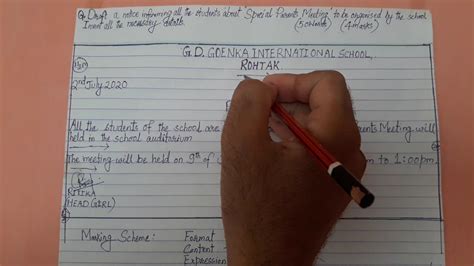 Q. Draft a notice informing all the students about 'Special Parents Meeting' to be organised by the school
Invent all the necessary details. (50 words) (4 marks)
G.D. GOENKA INTERNATIONAL SCHOOL,
ROHTAK
2nd July 2020
All the students of the school are Parents Meeting will
held in the school auditorium
The meeting will be held on 9th of to 1:00pm.
RITIKA
HEAD GIRL)
Marking Scheme: Format
Content
Expression